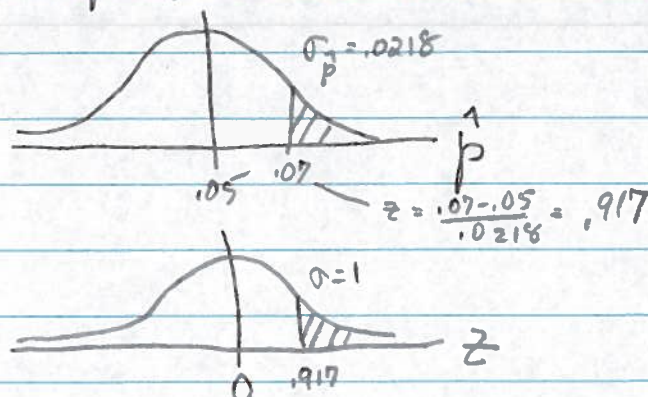 σp̂ = .0218
p̂
.05 .07
z = .07-.05/.0218 = .917
σ=1
z
0 .917